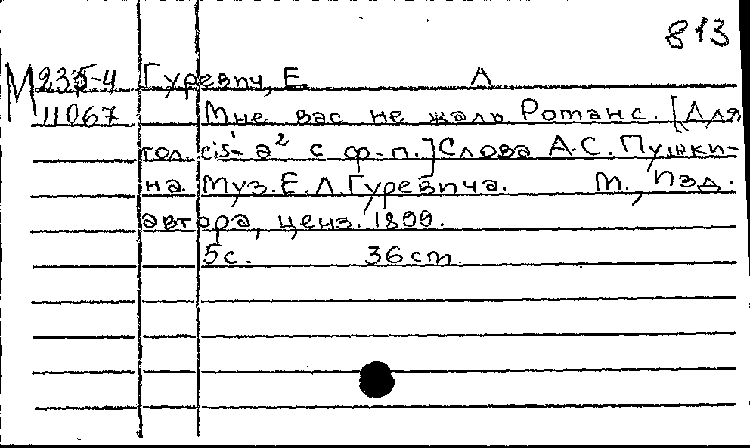 813
М 235-4 Гуревич, Е. Л
11067 Мне вас не жаль Романс. [Для
гол. cis¹-a² с ф-п.] Слова А.С. Пушки-
на. Муз. Е.Л. Гуревича. М., Изд.
автора, ценз. 1899.
5с. 36cm